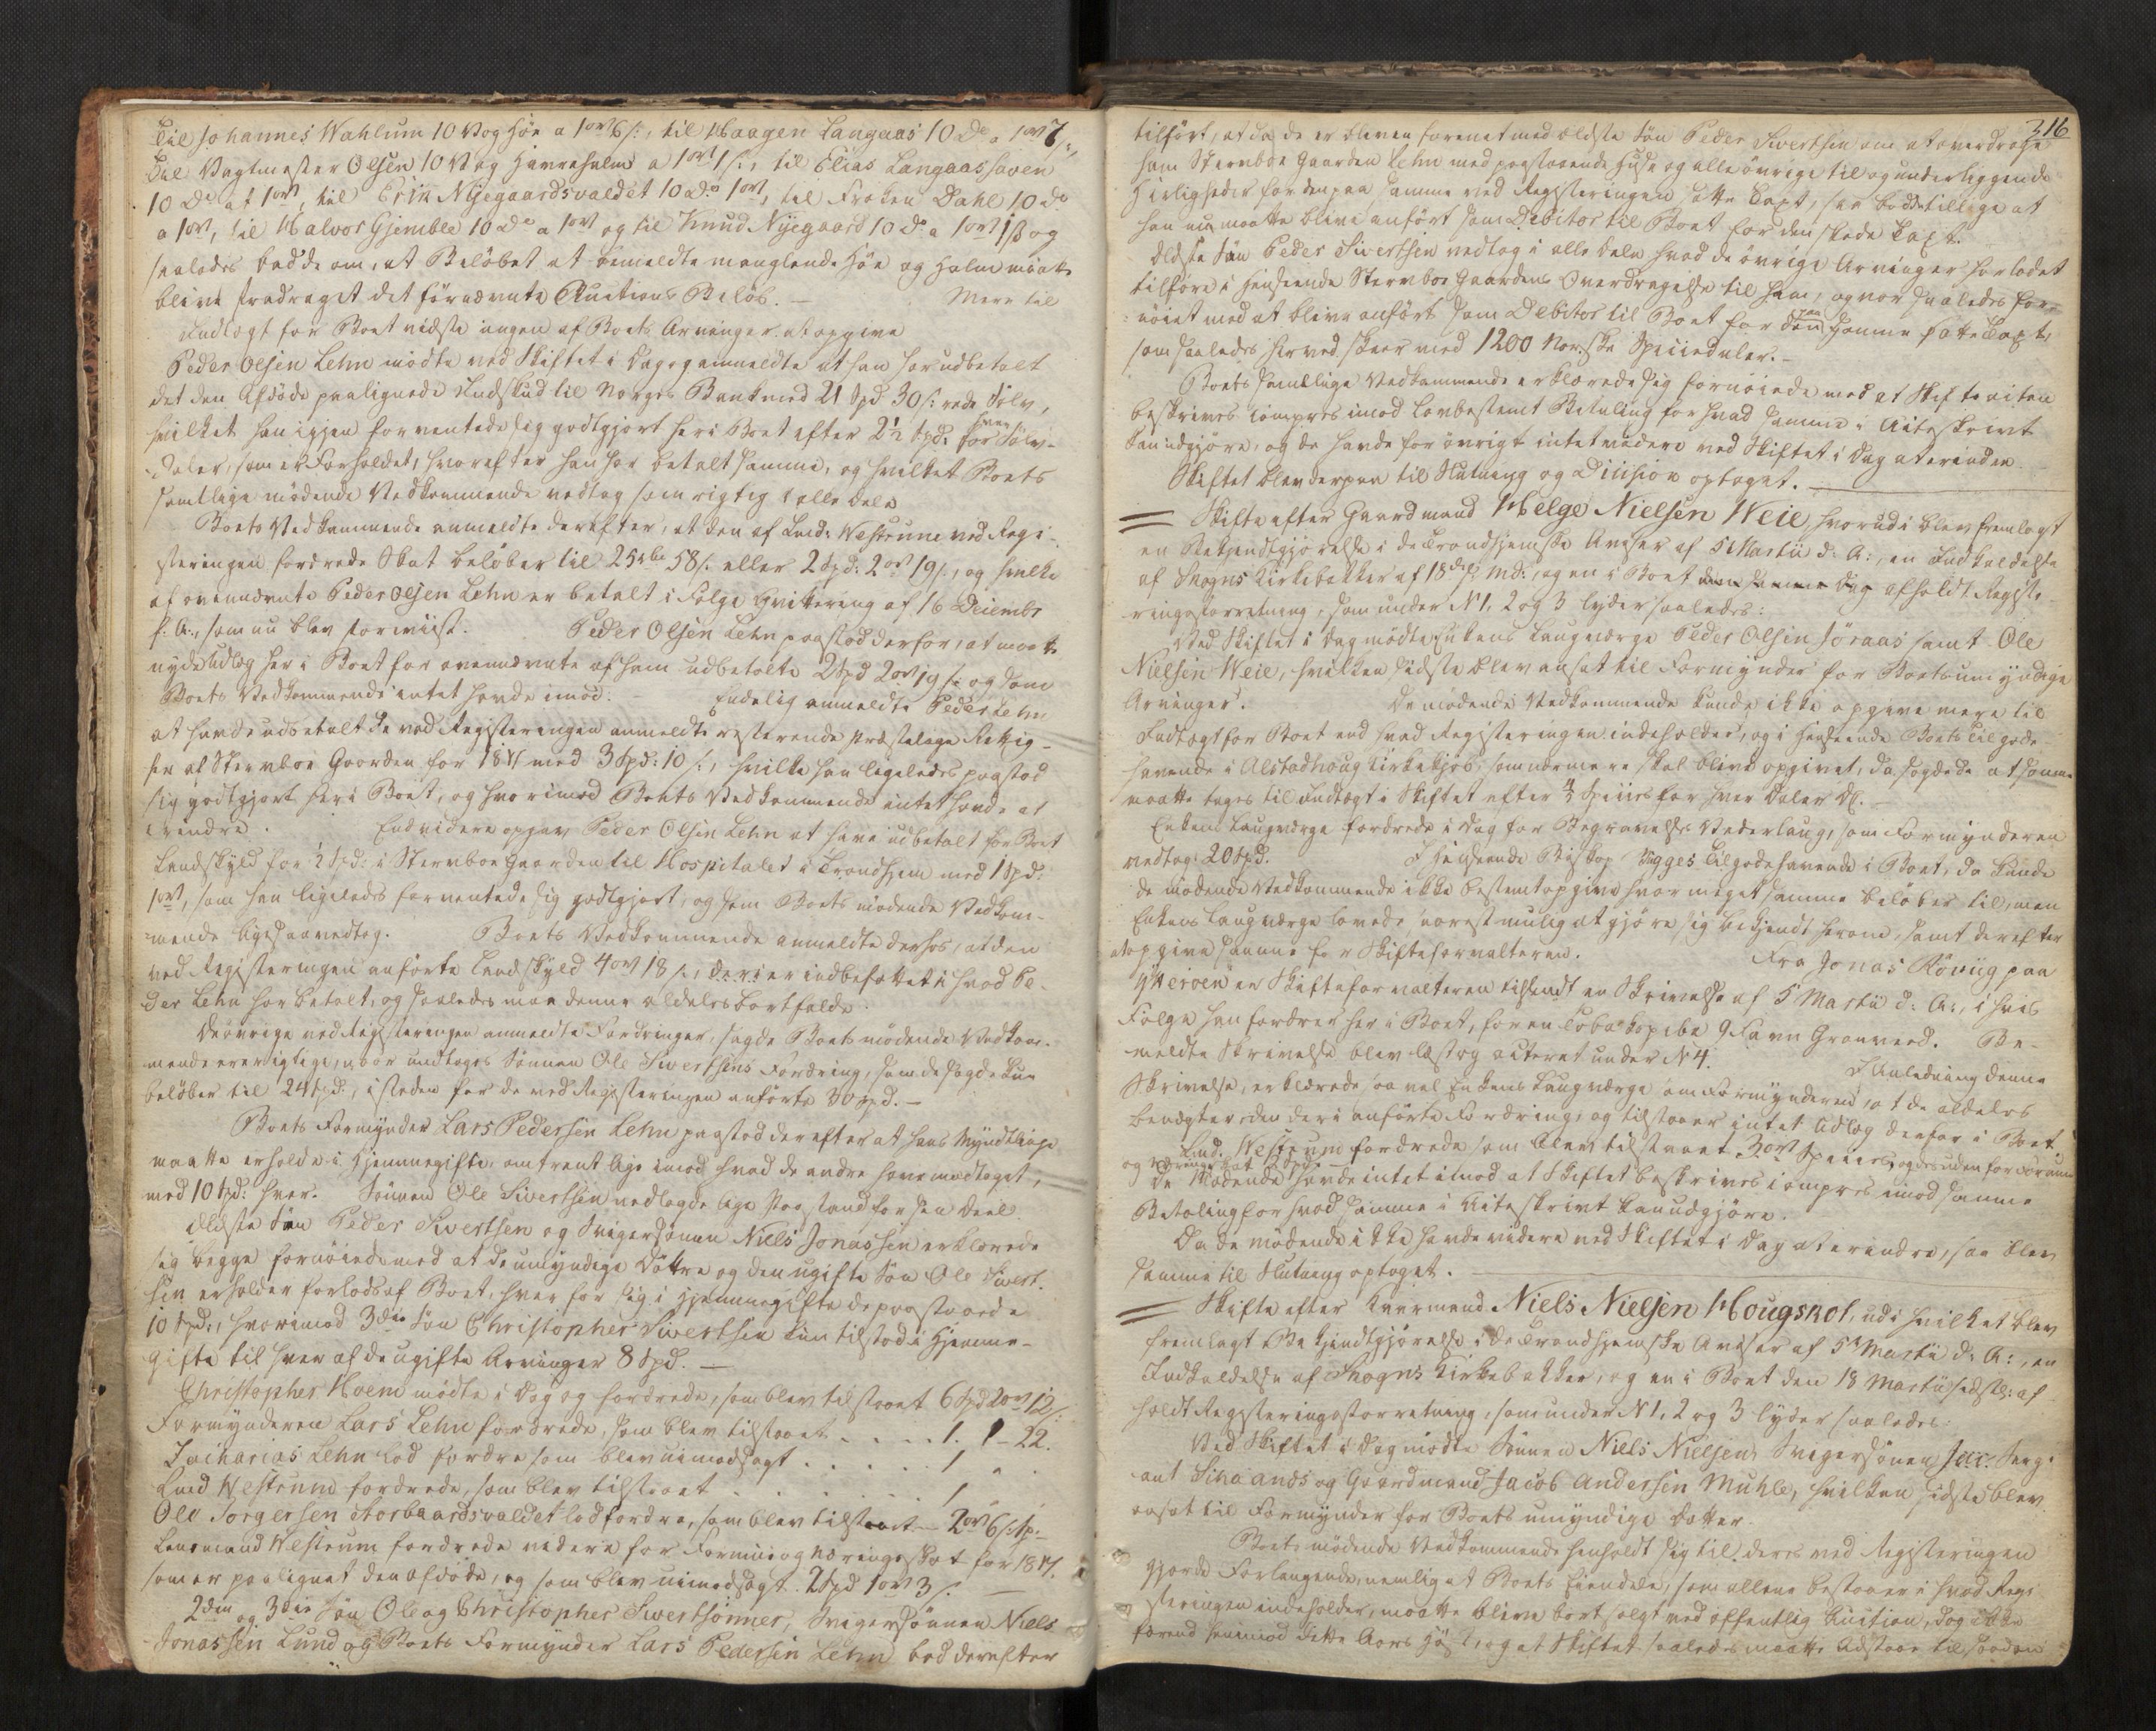 Til Johannes Wahlum 10 Vog Höe a 1ort 6 s:, til Haagen Langaas 10 Do a 1ort 7 s:,
Til Vagtmester Olsen 10 Vog Havrehalm a 1ort 1 s:, til Elias Langaashaven
10 Do af 1ort, til Erik Nygaardsvaldet 10 Do 1ort, til Froken Dahl 10 Do
a 1ort, til Halvor Gjemble 10 Do a 1ort og til Knud Nyegaard 10 Do a 1ort 1ß og
saaledes badde om, at Belöbet at bemeldte manglende Höe og Halm maatte
blive fradraget det fornævnte Auctions Belöb. — Mere til
Indtægt for Boet vidste ingen af Boets Arvinger at opgive
Peder Olsen Lehn mödte ved Skiftet i Dag og anmeldte at han har udbetalt
det den Afdöde paalignede Indskud til Norges Bank med 21 Spd 30 s: rede Sölv,
hvilket han igjen forventede sig godtgjort her i Boet efter 2½ Spd: for hver Sölv-
daler, som er Forholdet, hvorefter han har betalt samme, og hvilket Boets
samtlige mödende Vedkommende vedtog som rigtig i alle Dele
Boets Vedkommende anmeldte derefter, at den af Lend: Westrum ved Regi-
steringen fordrede Skat belöber til 25 rbd 58 s: eller 2 Spd: 2ort 19 s:, og hvilke
af ovennævnte Peder Olsen Lehn er betalt i Fölge Qvitering af 16 Decembr
f: A:, som nu blev forevist. Peder Olsen Lehn paastod derfor, at maatte
nyde Udlæg her i Boet for ovennævnte af ham udbetalte 2 Spd 2ort 19 s: og som
Boets Vedkommende intet havde imod. — Endelig anmeldte Peder Lehn
at havde udbetalt de ved Registeringen anmeldte resterende Præstelige Rettig-
heder af Stervboe Gaarden for 1817 med 3 Spd: 10 s:, hvilke han ligeledes paastod
sig godtgjort her i Boet, og hvorimod Boets Vedkommende intet havde at
erindre. Endvidere opgav Peder Olsen Lehn at have udbetalt for Boet
Landskyld for ½ Spd: i Stervboe Gaarden til Hospitalet i Trondhjem med 1 Spd:
1ort, som han ligeledes forventede sig godtgjort, og som Boets mödende Vedkom-
mende ligesaa vedtog. Boets Vedkommende anmeldte derhos, at den
ved Registeringen anförte Landskyld 4ort 18 s:, deri er indbefattet i hvad Pe-
der Lehn har betalt, og saaledes maa denne aldeles bortfalde
De övrige ved Registeringen anmeldte Fordringer, sagde Boets mödende Vedkom-
mende ere rigtige, naar undtages Sönnen Ole Sivertsens Fordring, som de sagde kun
belöber til 24 Spd:, isteden for de ved Registeringen anförte 30 Spd. —
Boets Formynder Lars Pedersen Lehn paastod derefter at hans Myndtlinge
maatte erholde i Hjemmegifte, omtrent lige imod hvad de andre have modtaget,
med 10 Spd: hver. Sönnen Ole Sivertsen nedlagde lige Paastand for sin Deel
Ældste Sön Peder Sivertsen og Svigersönnen Niels Jonassen erklærede
sig begge fornöiede med at de umyndige Döttre og den ugifte Sön Ole Sivert-
sen erholder forlods af Boet, hver for sig i Hjemmegifte de paastaaede
10 Spd:, hvorimod 3die Sön Christopher Sivertsen kun tilstod i Hjemme-
gifte til hver af de ugifte Arvinger 8 Spd. —
Christopher Hoem mödte i Dag og fordrede, som blev tilstaaet 6 Spd 2ort 12 s:
Formynderen Lars Lehn fordrede, som blev tilstaaet . . . . . 1. 1 – 22.
Zacharias Lehn lod fordre som blev uimodsagt . . . . . 1 „ .
Lend Westrum fordrede, som blev tilstaaet . . . . . 1
Ole Torgersen Norbaardsvaldet lod fordre, som blev tilstaaet — 2ort 6 s: Sp.
Lensmand Westrum fordrede videre for Formue og Næringsskat for 1817.
som er paalignet den afdöde, og som blev uimodsagt. 2 Spd 1ort 3 s: —
2den og 3die Sön Ole og Christopher Sivertsönner, Svigersönnen Niels
Jonassen Lund og Boets Formynder Lars Pedersen Lehn bad derefter
316
tilfört, at da de er bleven forenet med ældste Sön Peder Sivertsen om at overdrage
ham Stervboe Gaarden Lehn med paastaaende Huse og alle övrige til og underliggende
Herligheder for den paa samme ved Registeringen satte Taxt, saa badde tillige at
han nu maatte blive anfört som Debitor til Boet for den skede Taxt.
Ældste Sön Peder Sivertsen vedtog i alle Dele hvad de övrige Arvinger har ladet
tilföre i Henseende Stervboe Gaardens Overdragelse til ham, og var saaledes for-
nöiet med at blive anfört som Debitor til Boet for den paa samme satte Taxt,
som saaledes herved skeer med 1200 Norske Speciedaler. —
Boets samtlige Vedkommende erklærede sig fornöiede med at Skifte acten
beskrives in compres imod lovbestemt Betaling for hvad samme i Acteskrivt
kan udgjöre, og de havde forövrigt intet videre ved Skiftet i Dag at erindre.
Skiftet blev derpaa til Slutning og Decision optaget. —
Skifte efter Gaardmand Helge Nielsen Weie, hvorudi blev fremlagt
en Bekjendtgjörelse i de Trondhjemske Aviser af 5 Martii d: A:, en Indkaldelse
af Skogns Kirkebakker af 18de s: Md:, og en i Boet den samme Dag afholdt Registe-
ringsforretning, som under N 1, 2 og 3 lyder saaledes:
Ved Skiftet i Dag mödte Enkens Laugværge Peder Olsen Föraas samt Ole
Nielsen Weie, hvilken sidste blev ansat til Formynder for Boets umyndige
Arvinger. De mödende Vedkommende kunde ikke opgive mere til
Indtægt for Boet end hvad Registeringen indeholder, og i Henseende Boets tilgode-
havende i Alstadhoug Kirkekjöb, som nærmere skal blive opgivet, da sagde de at samme
maatte tages til Indtægt i Skiftet efter ½ Species for hver Daler Dl. —
Enkens Laugværge fordrede i Dag for Begravelses Vederlaug, som Formynderen
vedtog: 20 Spd. I Henseende Biskop Bugges Tilgodehavende i Boet, da kunde
de mödende Vedkommende ikke bestemt opgive hvor meget samme belöber til, men
Enkens Laugværge lovede snarest mulig at gjöre sig bekjendt herom, samt derefter
at opgive samme for Skifteforvalteren. Fra Jonas Rövüg paa
Ytteröen er Skifteforvalteren tilsendt en Skrivelse af 5 Martii d: A:, i hvis
Fölge han fordrer her i Boet, for en Tobakspibe 9 Favn Granveed. Be-
meldte Skrivelse blev læst og acteret under N 4. I Anledning denne
Skrivelse, erklærede saavel Enkens Laugværge som Formynderen, at de aldeles
benægter den deri anförte Fordring, og tilstaaer intet Udlæg derfor i Boet
Lend. Westrum fordrede som blev tilstaaet 3ort Species, og
og Næringsskat 2 Spd. —
De Mödende havde intet imod at Skiftet beskrives in compres imod samme
Betaling for hvad samme i Acteskrivt kan udgjöre.
Da de mödende ikke havde videre ved Skiftet i Dag at erindre, saa blev
samme til Slutning optaget. —
Skifte efter Kaarmand Niels Nielsen Hougskot, udi hvilket blev
fremlagt Bekjendtgjörelse i de Trondhjemske Aviser af 5te Martii d: A:, en
Indkaldelse af Skogns Kirkebakker, og en i Boet den 18 Martii sidstl: af-
holdt Registeringsforretning, som under N 1, 2 og 3 lyder saaledes:
Ved Skiftet i Dag mödte Sönnen Niels Nielsen, Svigersönnen Serg-
ant Sivaands og Gaardmand Jacob Andersen Muhle, hvilken sidste blev
ansat til Formynder for Boets umyndige Datter
Boets mödende Vedkommende henholdt sig til deres ved Registeringen
gjorde Forlangende, nemlig at Boets Eiendele, som allene bestaaer i hvad Regi-
steringen indeholder, maatte blive bortsolgt ved offentlig Auction, dog ikke
förend henimod dette Aars Höst, og at Skiftet saaledes maatte udstaae til saadan